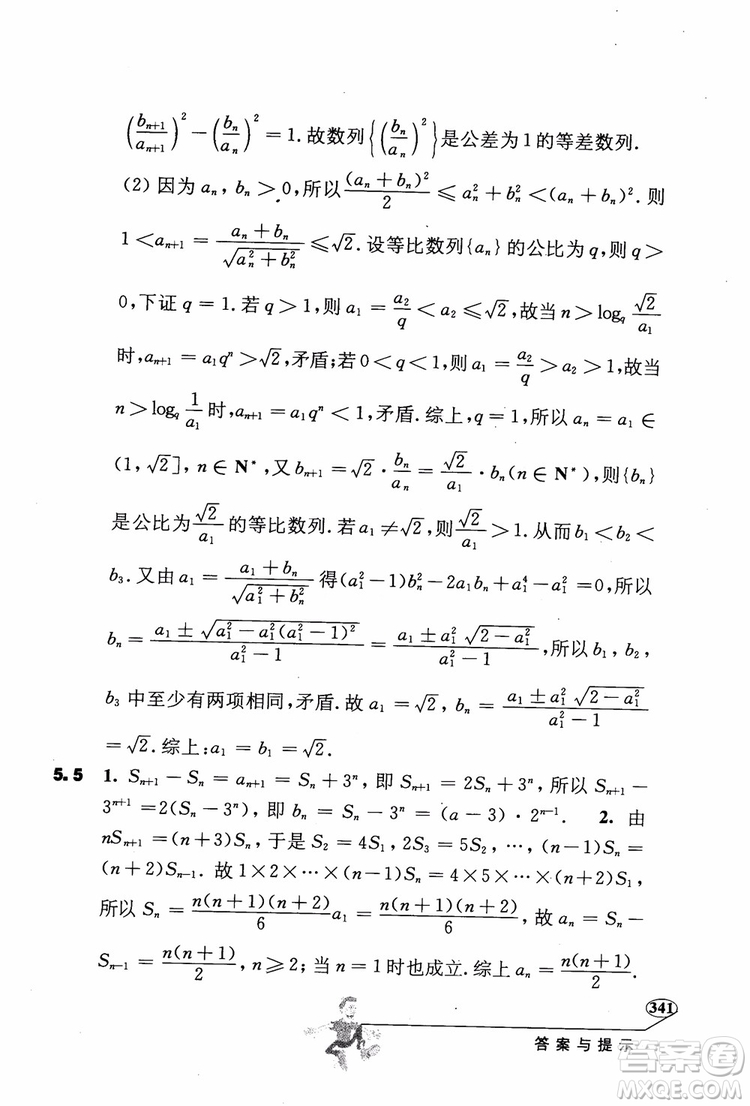 (b_{n+1}/a_{n+1})^2-(b_n/a_n)^2=1.故数列{(b_n/a_n)^2}是公差为1的等差数列.
(2) 因为 a_n, b_n>0,所以(a_n+b_n)^2/2≤a_n^2+b_n^2<(a_n+b_n)^2. 则
1<a_{n+1}=(a_n+b_n)/√(a_n^2+b_n^2)≤√2. 设等比数列{a_n}的公比为 q,则 q>
0,下证 q=1.若 q>1,则 a_1=a_2/q<a_2≤√2,故当 n>log_q √2/a_1
时,a_{n+1}=a_1q^n>√2,矛盾;若 0<q<1,则 a_1=a_2/q>a_2>1,故当
n>log_q 1/a_1 时,a_{n+1}=a_1q^n<1,矛盾.综上,q=1,所以 a_n=a_1∈
(1,√2],n∈N*,又 b_{n+1}=√2·b_n/a_n=√2/a_1·b_n(n∈N*),则{b_n}
是公比为√2/a_1的等比数列.若 a_1≠√2,则√2/a_1>1.从而 b_1<b_2<
b_3.又由 a_1=(a_1+b_n)/√(a_1^2+b_n^2)得(a_1^2-1)b_n^2-2a_1b_n+a_1^4-a_1^2=0,所以
b_n=(a_1±√(a_1^2-a_1^2(a_1^2-1)^2))/(a_1^2-1)=(a_1±a_1^2√(2-a_1^2))/(a_1^2-1),所以 b_1, b_2,
b_3 中至少有两项相同,矛盾.故 a_1=√2, b_n=(a_1±a_1^2√(2-a_1^2))/(a_1^2-1)
=√2.综上:a_1=b_1=√2.
5.5 1. S_{n+1}-S_n=a_{n+1}=S_n+3^n, 即 S_{n+1}=2S_n+3^n, 所以 S_{n+1}-
3^{n+1}=2(S_n-3^n),即 b_n=S_n-3^n=(a-3)·2^{n-1}. 2. 由
nS_{n+1}=(n+3)S_n,于是 S_2=4S_1, 2S_3=5S_2, …, (n-1)S_n=
(n+2)S_{n-1}. 故 1×2×…×(n-1)S_n=4×5×…×(n+2)S_1,
所以 S_n=n(n+1)(n+2)/6 a_1=n(n+1)(n+2)/6, 故 a_n=S_n-
S_{n-1}=n(n+1)/2, n≥2; 当 n=1 时也成立.综上 a_n=n(n+1)/2.
341
答案与提示
答案圈
MXQE.COM